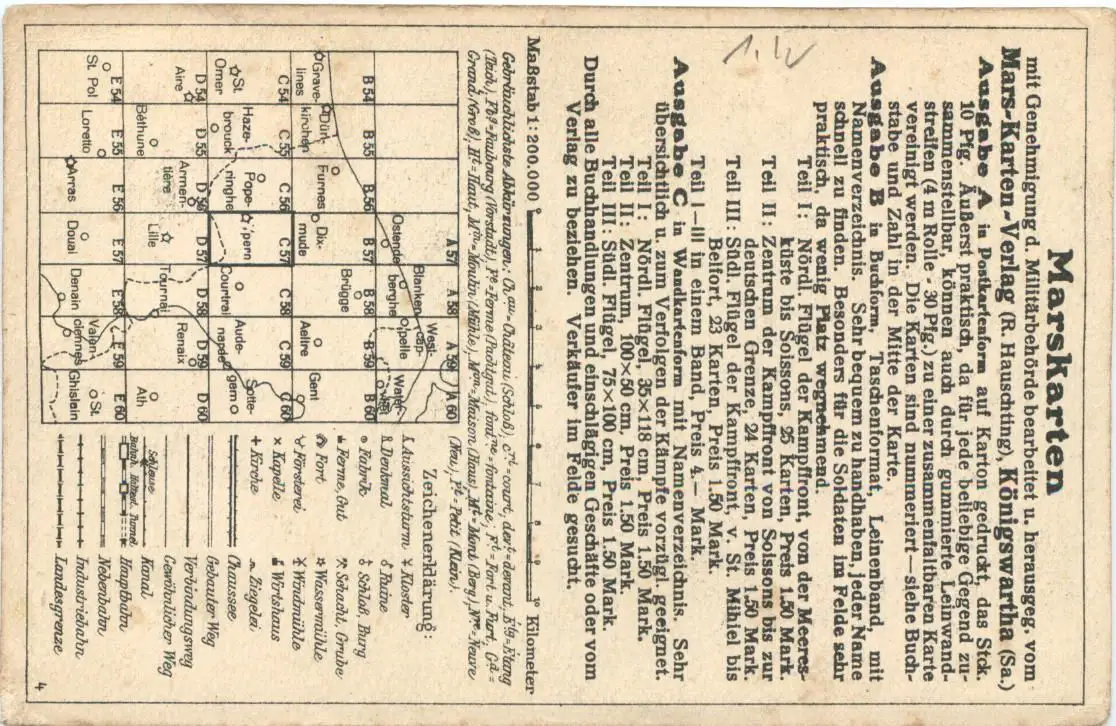 Marskarten
mit Genehmigung d. Militärbehörde bearbeitet u. herausgeg. vom
Mars-Karten-Verlag (R. Hauschting), Königswartha (Sa.)
Ausgabe A in Postkartenform auf Karton gedruckt, das Stck.
10 Pfg. Äußerst praktisch, da für jede beliebige Gegend zu-
sammenstellbar, können auch durch gummierte Leinwand-
streifen (4 m Rolle - 30 Pfg.) zu einer zusammenfaltbaren Karte
vereinigt werden. Die Karten sind nummeriert — siehe Buch-
stabe und Zahl in der Mitte der Karte.
Ausgabe B in Buchform, Taschenformat, Leinenband, mit
Namenverzeichnis. Sehr bequem zu handhaben, jeder Name
schnell zu finden. Besonders für die Soldaten im Felde sehr
praktisch, da wenig Platz wegnehmend.
Teil I: Nördl. Flügel der Kampffront, von der Meeres-
küste bis Soissons, 25 Karten, Preis 1.50 Mark.
Teil II: Zentrum der Kampffront von Soissons bis zur
deutschen Grenze, 24 Karten, Preis 1.50 Mark.
Teil III: Südl. Flügel der Kampffront, v. St. Mihiel bis
Belfort, 23 Karten, Preis 1.50 Mark.
Teil I—III in einem Band, Preis 4.— Mark.
Ausgabe C in Wandkartenform mit Namenverzeichnis. Sehr
übersichtlich u. zum Verfolgen der Kämpfe vorzügl. geeignet.
Teil I: Nördl. Flügel, 35×118 cm, Preis 1.50 Mark.
Teil II: Zentrum, 100×50 cm, Preis 1.50 Mark.
Teil III: Südl. Flügel, 75×100 cm, Preis 1.50 Mark.
Durch alle Buchhandlungen und einschlägigen Geschäfte oder vom
Verlag zu beziehen. Verkäufer im Felde gesucht.
Maßstab 1:200.000 0 1 2 3 4 5 6 7 8 9 10 Kilometer
Gebräuchlichste Abkürzungen: Chau = Château (Schloß), crt = court, dert = derant, Etg = Etang
(Teich), Fbg = Faubourg (Vorstadt), Fe = Ferme (Pachtgut), fontne = fontaine, Ft = Fort u. Furt, Gd =
Grand (Groß), Ht = Haut, Min = Moulin (Mühle), Mon = Maison (Haus), Mt = Mont (Berg), Nve = Neuve
(Neu), Pt = Petit (Klein).
A 57 A 58 A 59 A 60
Blanken-
berghe
West-
kapelle
B 54 B 55 B 56 B 57 B 58 B 59 B 60
Ostende
Water-
vliet
Grave-
lines
Dün-
kirchen
Furnes
Dix-
mude
Brügge
Aeltre
Gent
C 54 C 55 C 56 C 57 C 58 C 59 C 60
St.
Omer
Haze-
brouck
Pope-
ringhe
Ypern
Courtrai
Aude-
narde
Sotte-
gem
D 54 D 55 D 56 D 57 D 58 D 59 D 60
Aire
Béthune
Armen-
tière
Lille
Tournai
Renaix
Ath
E 54 E 55 E 56 E 57 E 58 E 59 E 60
St. Pol
Loretto
Arras
Douai
Denain
Valen-
ciennes
St.
Ghislain
Zeichenerklärung:
Aussichtsturm
Kloster
Denkmal
Ruine
Fabrik
Schloß, Burg
Ferme, Gut
Schacht, Grube
Fort
Wassermühle
Försterei
Windmühle
Kapelle
Wirtshaus
Kirche
Ziegelei
Chaussee
Gebauter Weg
Verbindungsweg
Gewöhnlicher Weg
Schleuse
Kanal
Bahnh. Haltest. Tunnel
Hauptbahn
Nebenbahn
Industriebahn
Landesgrenze
4